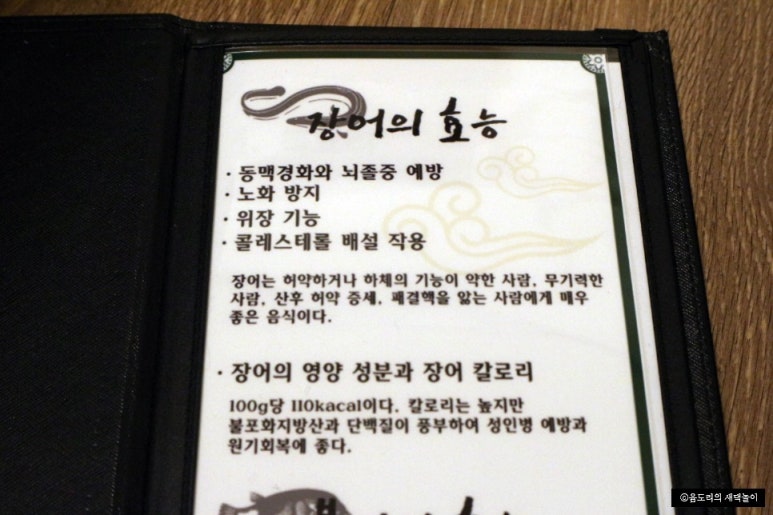 장어의 효능
· 동맥경화와 뇌졸중 예방
· 노화 방지
· 위장 기능
· 콜레스테롤 배설 작용
장어는 허약하거나 하체의 기능이 약한 사람, 무기력한
사람, 산후 허약 증세, 폐결핵을 앓는 사람에게 매우
좋은 음식이다.
· 장어의 영양 성분과 장어 칼로리
100g당 110kacal이다. 칼로리는 높지만
불포화지방산과 단백질이 풍부하여 성인병 예방과
원기회복에 좋다.
ⓒ음도리의 새댁놀이